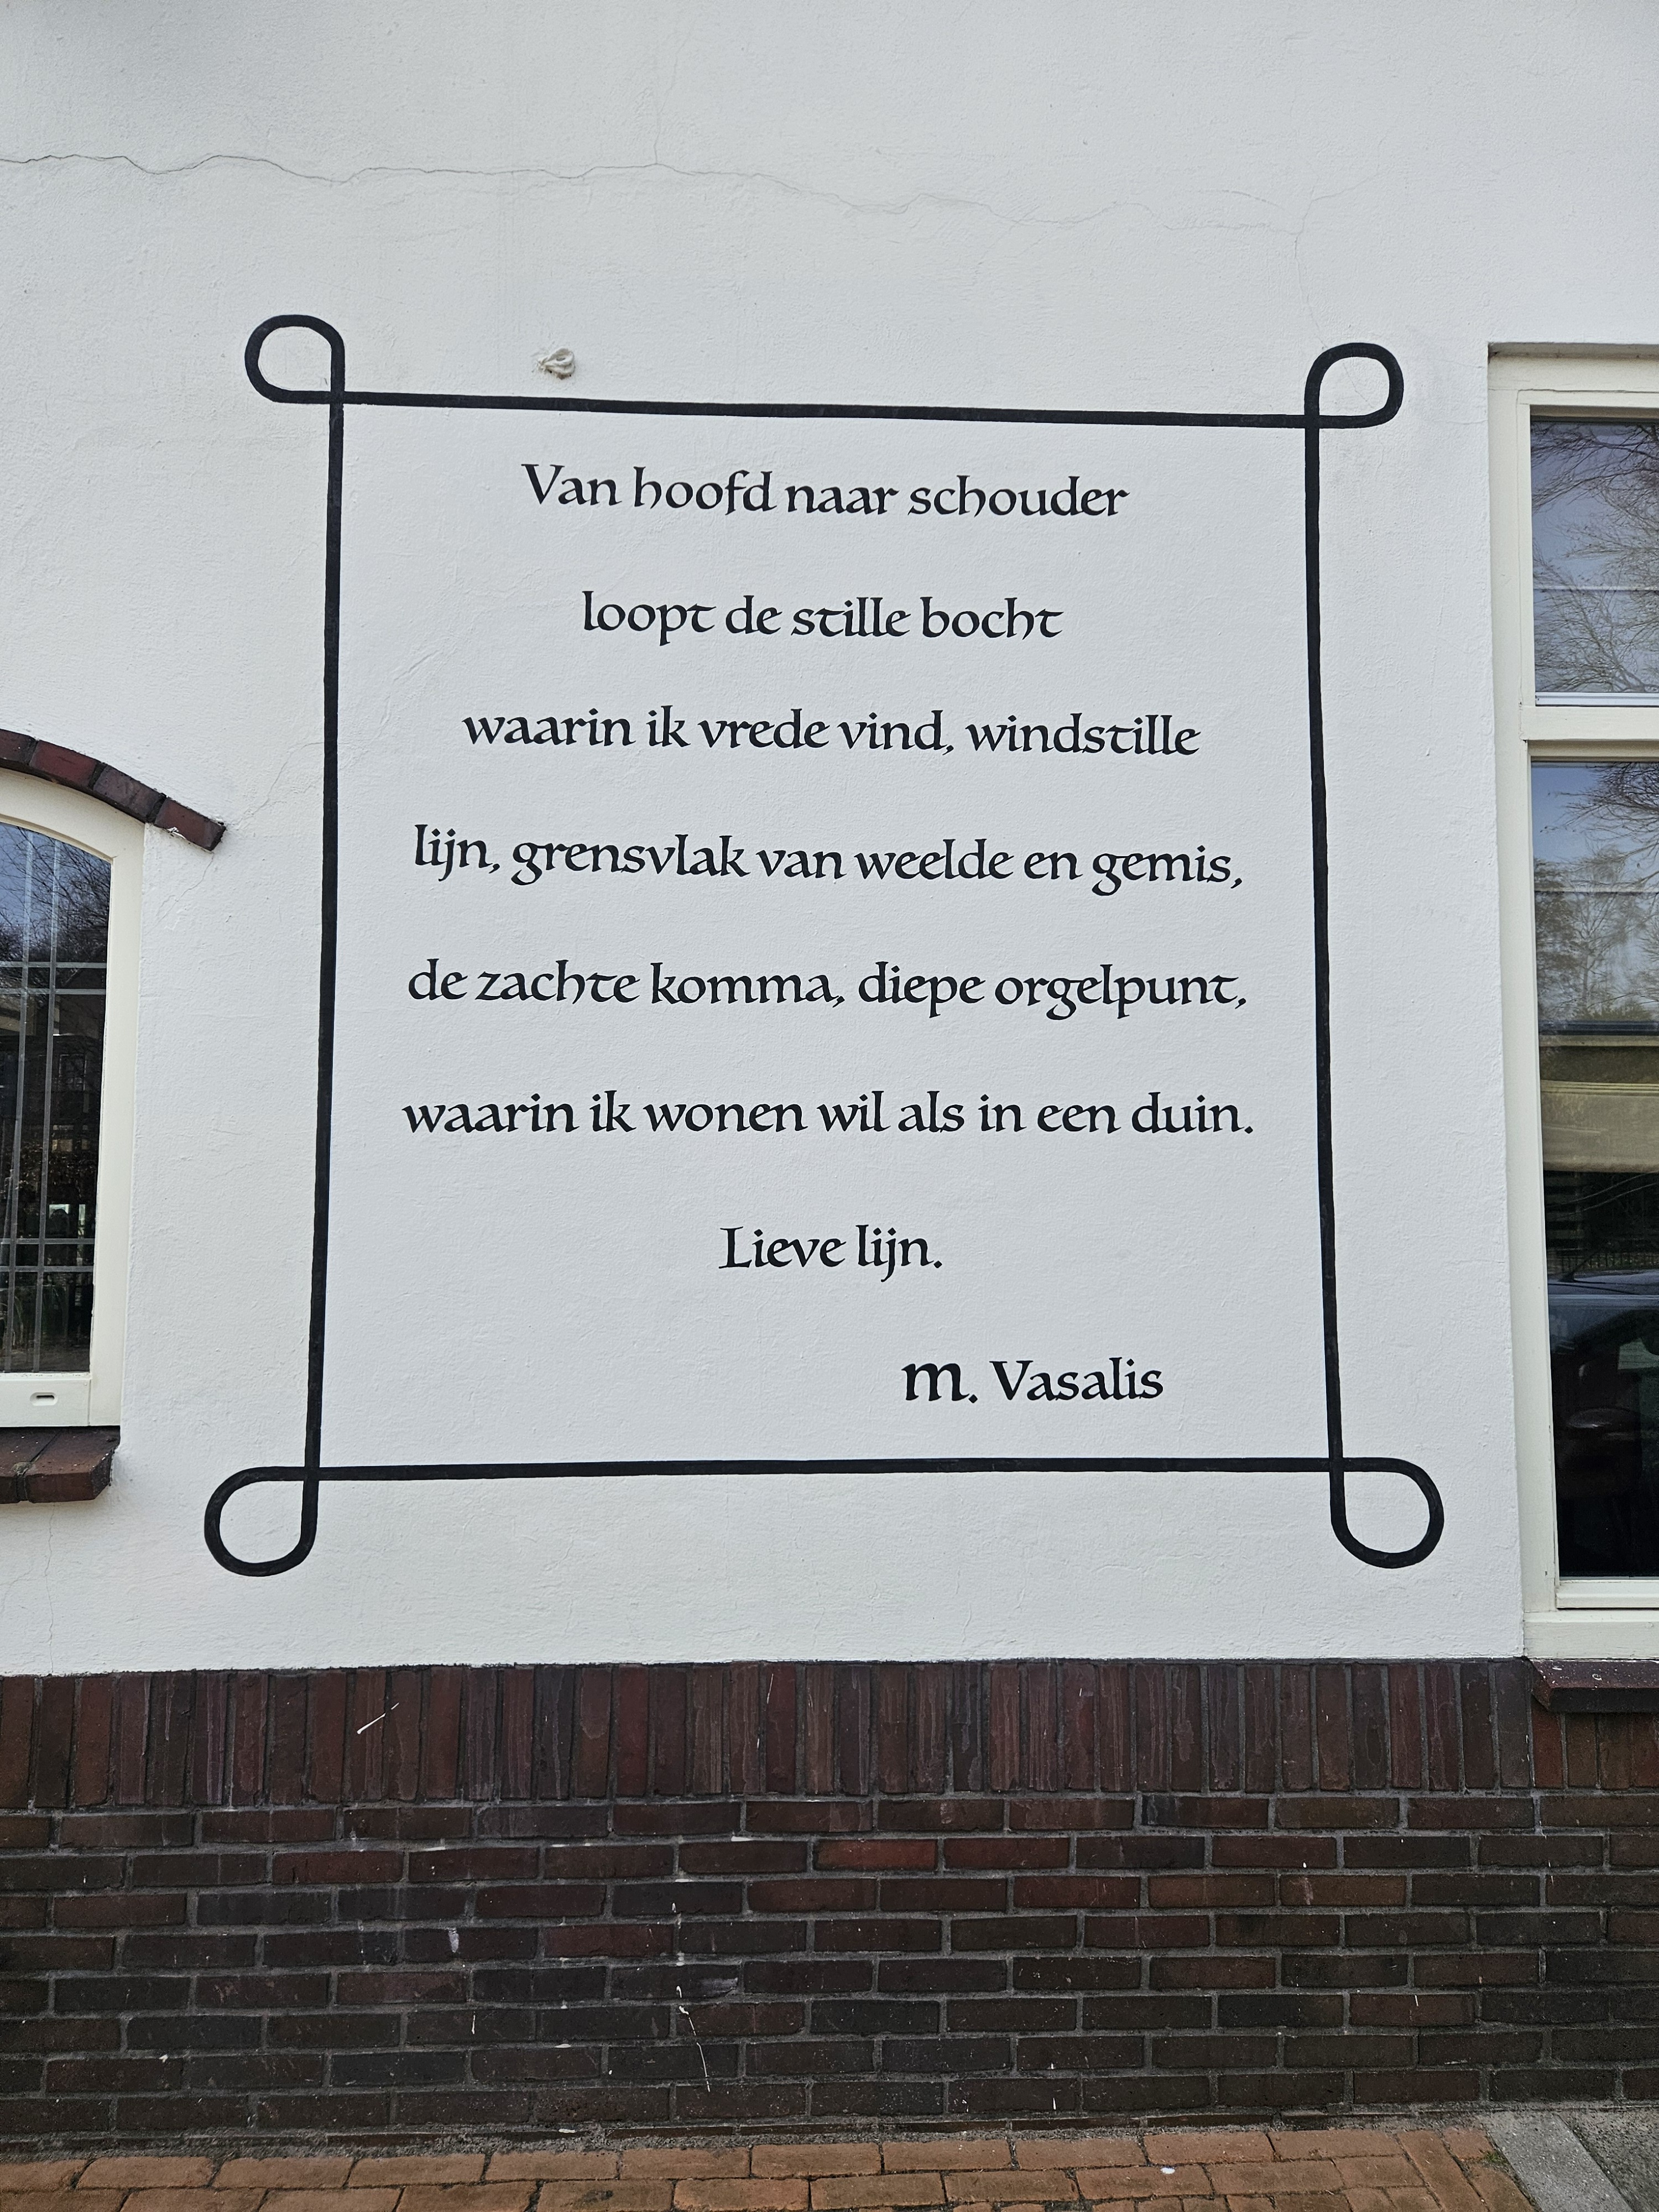 Van hoofd naar schouder
loopt de stille bocht
waarin ik vrede vind, windstille
lijn, grensvlak van weelde en gemis,
de zachte komma, diepe orgelpunt,
waarin ik wonen wil als in een duin.
Lieve lijn.
m. Vasalis